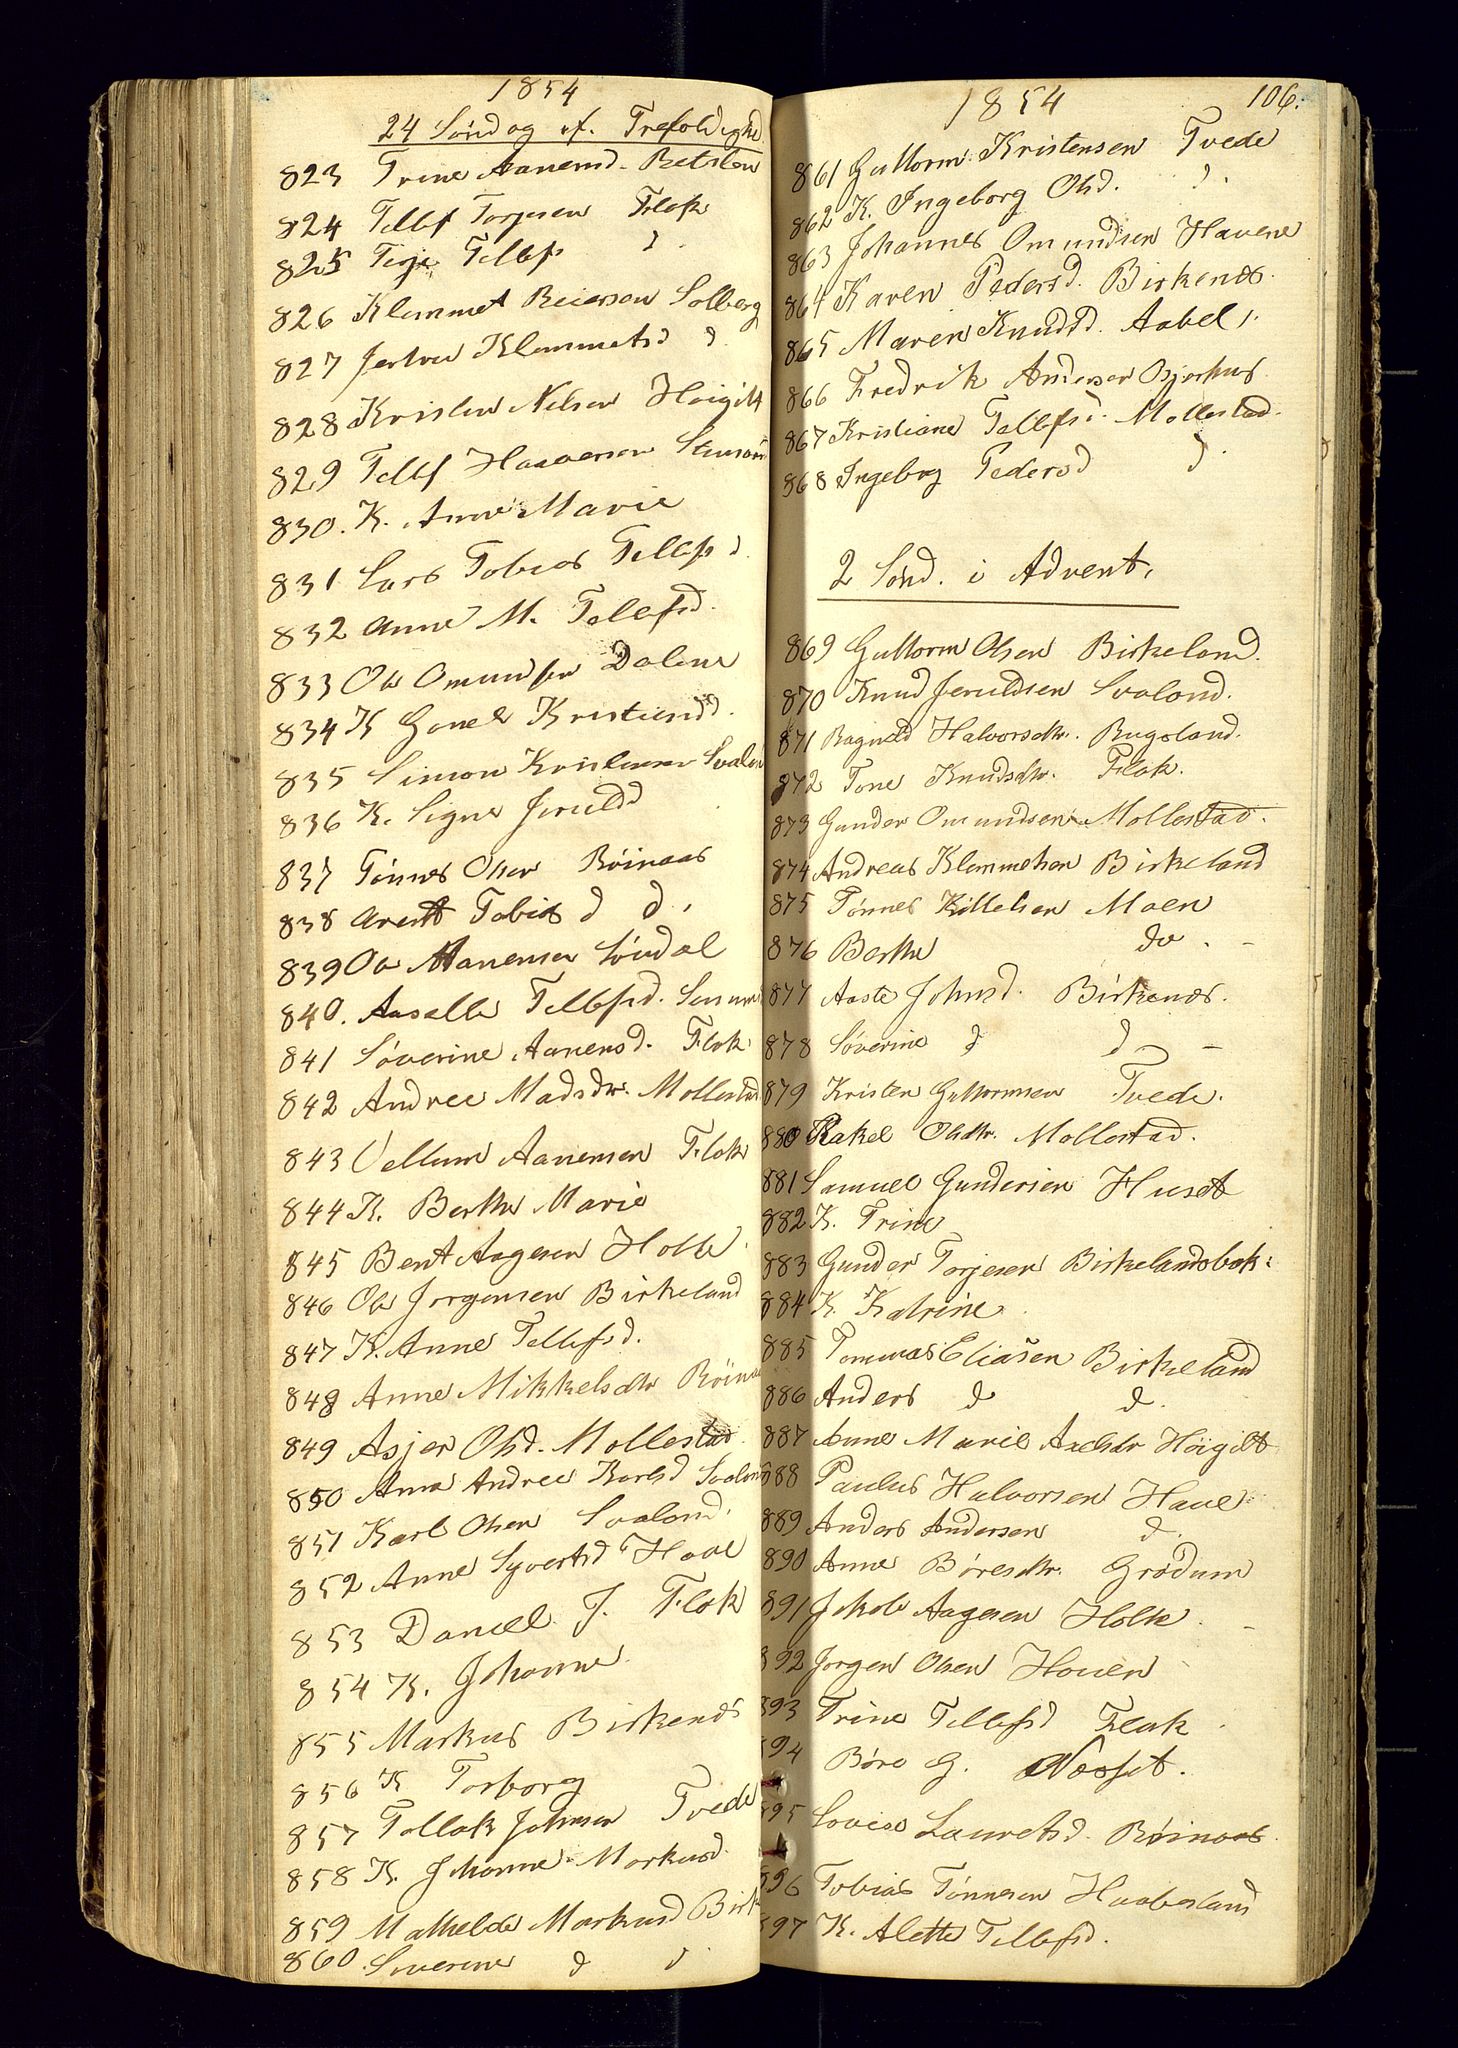 1854
24 Søndag ef. Trefoldighd
823 Trine Aanensd. Retslen
824 Tellef Torjesen Flak
825 Terje Tellefs d.
826 Klemmet Reiersen Solberg
827 Jertru Klemmetsd d
828 Kristen Nelsen Høigilt
829 Tellef Haaversen
830. K. Anne Marie
831 Lars Tobias Tellefsd.
832 Anne M. Tellefsd.
833 Ole Omundsen Dalene
834 K Gonel Kristensd.
835 Simon Kristensen Svalan
836 K. Signe Jeruldsd
837 Tønnes Olsen Röinaas
838 Arent Tobias d d.
839 Ole Aanensen Søndal
840. Aaselle Tellefsd.
841 Søverine Aanensd. Flak
842 Andree Madsdtr. Mollestad
843 Vellum Aanensen Flak
844 K. Berthe Marie
845 Bent Aagesen Holte
846 Ole Jorgensen Birkeland
847 K. Anne Tellefsd.
848 Anne Mikkelsdtr Röinaa
849 Asjer Olsd. Mollestad
850 Anne Andree Karlsd Svaland
851 Karl Olsen Svaland.
852 Anne Syvertsd Have
853 Daniel J. Flak
854 K. Johanne
855 Markus Birkenæs
856 K Torborg
857 Tellak Johnsen Tvede
858 K. Johanne Markusd
859 Mathilde Markusd Birk
860 Severine d d
1854 106.
861 Guttorm Kristensen Tvede
862 K. Ingeborg Olsd. d.
863 Johannes Omundsen Havene
864 Karen Pedersd. Birkenæs
865 Maren Knudsd. Aabel.
866 Fredrik Andersen Bjerkus
867 Kristiane Tellefsd. Mollestad.
868 Ingeborg Pedersd d.
2 Sønd. i Advent.
869 Guttorm Olsen Birkeland.
870 Knud Jeruldsen Svaland.
871 Ragnild Halvorsdtr. Rugsland.
872 Tone Knudsdtr. Flak.
873 Gunder Omundsen Mollestad.
874 Andreas Klemmetsen Birkeland
875 Tønnes Kittelsen Moen
876 Berthe do. -
877 Aaste Johnsd. Birkenæs.
878 Søverine d d -
879 Kristen Guttormsen Tvede.
880 Rakel Olsdtr. Mollestad.
881 Samuel Gundersen Huset
882 K. Trine
883 Gunder Torjesen Birkelandsbak:
884 K Katrine
885 Tommas Eliasen Birkeland
886 Anders d d.
887 Anne Marie Axelsdr Høigilt
888 Paulus Halvorsen Have
889 Anders Andersen d.
890 Anne Børesdtr. Grødum
891 Jakob Aagesen Holte. -
892 Jorgen Olsen Hoven
893 Trine Tellefsd Flak
894 Børe G. Næsset.
895 Lovise Lauretsd. Røinaas
896 Tobias Tønnesen Haabesland
897 K. Alette Tellefsd.